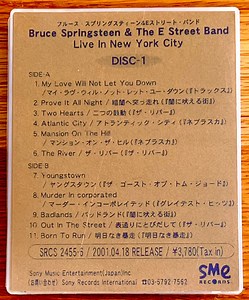 ブルース・スプリングスティーン&Eストリート・バンド
Bruce Springsteen & The E Street Band
Live In New York City
DISC-1
SIDE-A
1. My Love Will Not Let You Down
／マイ・ラヴ・ウィル・ノット・レット・ユー・ダウン『トラックス』
2. Prove It All Night / 暗闇へ突っ走れ『闇に吠える街』
3. Two Hearts / 二つの鼓動『ザ・リバー』
4. Atlantic City / アトランティック・シティ『ネブラスカ』
5. Mansion On The Hill
／マンション・オン・ザ・ヒル『ネブラスカ』
6. The River / ザ・リバー『ザ・リバー』
SIDE-B
7. Youngstown
／ヤングスタウン『ザ・ゴースト・オブ・トム・ジョード』
8. Murder In corporated
／マーダー・インコーポレイテッド『グレイテスト・ヒッツ』
9. Badlands / バッドランド『闇に吠える街』
10. Out In The Street / 表通りにとびだして『ザ・リバー』
11. Born To Run / 明日なき暴走『明日なき暴走』
SRCS 2455-5 / 2001.04.18 RELEASE / ¥3,780(Tax in)
Sony Music Entertainment(Japan)Inc.
(株)SMEJ Sony Records International
03-5792-7562
SME
RECORDS